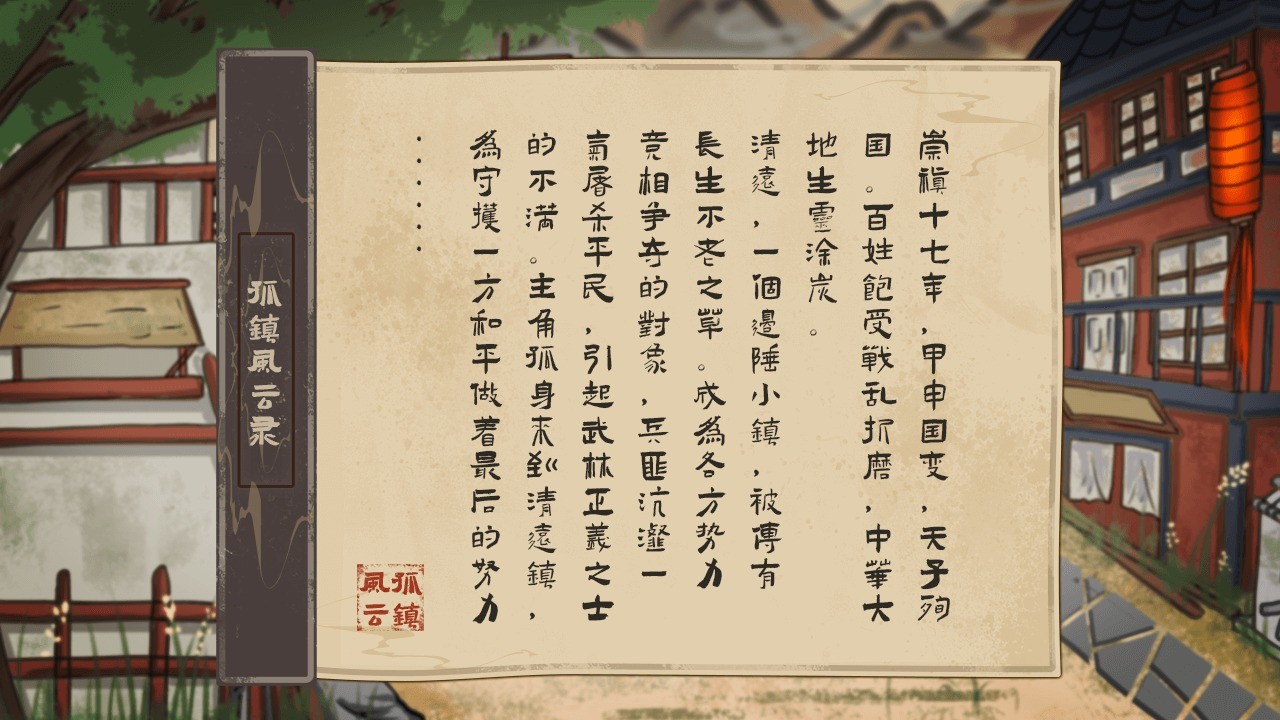 崇禎十七年，甲申国变，天子殉
国。百姓飽受戰乱折磨，中華大
地生靈涂炭。
清遠，一個邊陲小鎮，被傳有
長生不老之草。成為各方势力
竞相争夺的對象，兵匪沆瀣一
氣屠杀平民，引起武林正義之士
的不満。主角孤身来到清遠鎮，
為守擭一方和平做着最后的努力
······
孤鎮
風云
孤鎮風云录